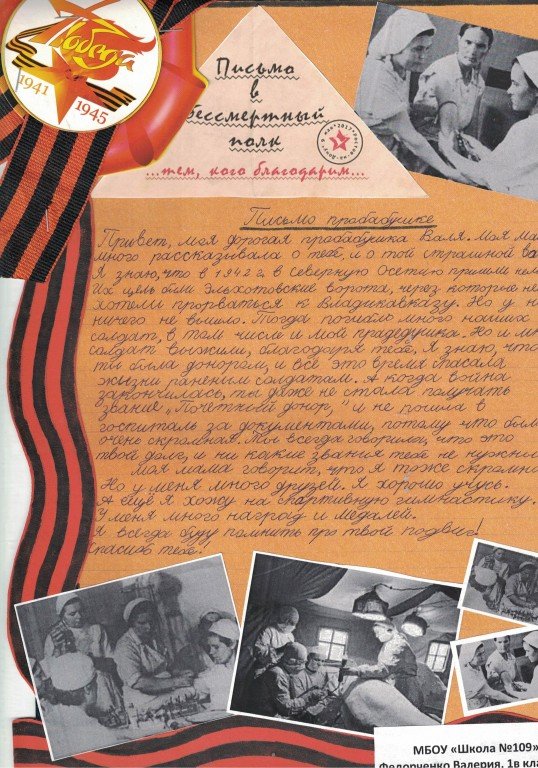 Победа
1941
1945
Письмо
в
бессмертный
полк
...тем, кого благодарим...
Письмо прабабушке
Привет, моя дорогая прабабушка Валя. Моя ма
много рассказывала о тебе, и о той страшной во
Я знаю, что в 1942 г. в северную Осетию пришли нем
Их цель были Эльхотовские ворота, через которые не
хотели прорваться к Владикавказу. Но у н
ничего не вышло. Тогда погибло много наших
солдат, в том числе и мой прадедушка. Но и мн
солдат выжили, благодаря тебе. Я знаю, что
ты была донором, и всё это время спасала
жизни раненым солдатам. А когда война
закончилась, ты даже не стала получать
звание „Почётный донор," и не пошла в
госпиталь за документами, потому что был
очень скромная. Ты всегда говорила, что это
твой долг, и ни какие звания тебе не нужны
Моя мама говорит, что я тоже скромна
Но у меня много друзей. Я хорошо учусь.
А ещё я хожу на спортивную гимнастику.
У меня много наград и медалей.
Я всегда буду помнить про твой подвиг!
Спасибо тебе!
МБОУ «Школа №109»
Федорченко Валерия, 1в кла